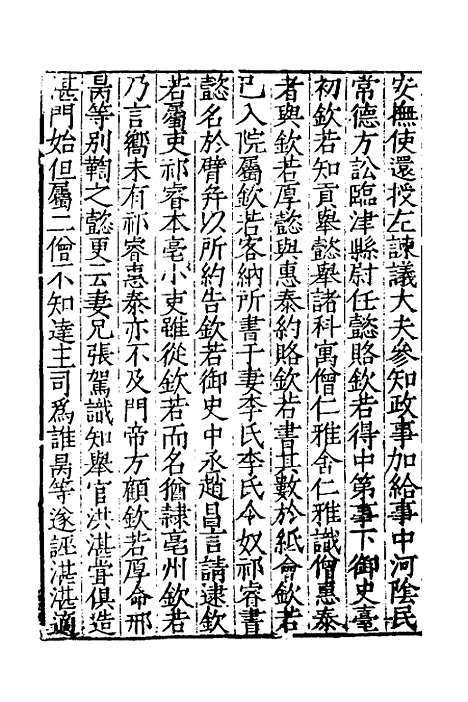 安撫使還授左諫議大夫參知政事加給事中河陰民
常德方訟臨津縣尉任懿賂欽若得中第事下御史臺
初欽若知貢舉懿舉諸科寓僧仁雅舍仁雅識僧惠秦
者與欽若厚懿與惠秦約賂欽若書其數於紙會欽若
已入院屬欽若客納所書于妻李氏李氏令奴祁睿書
懿名於臂并以所約告欽若御史中丞趙昌言請逮欽
若屬吏祁睿本亳小吏雖從欽若而名猶隸亳州欽若
乃言嚮未有祁睿惠秦亦不及門帝方顧欽若厚命邢
昺等別鞫之懿更云妻兄張駕識知舉官洪湛嘗俱造
湛門始但屬二僧不知達主司爲誰昺等遂誣湛湛適